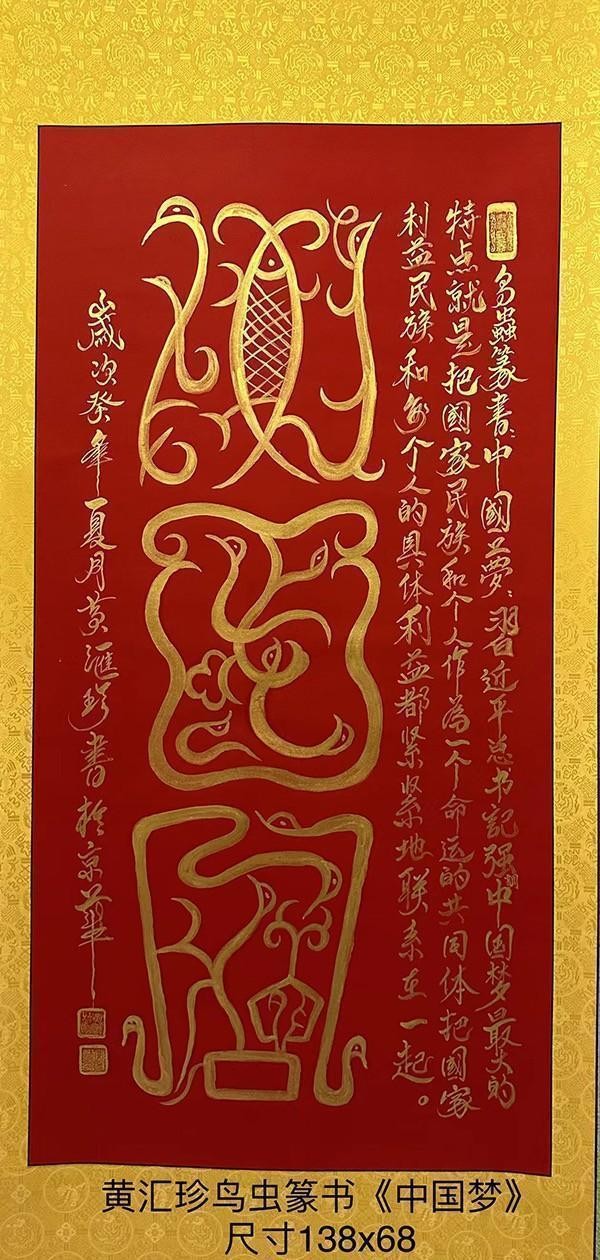 鸟蟲篆書:中國之夢:習近平总书記强中国梦最大的
特点就是把國家民族和个人作為一个命运的共同体把國家
利益民族和每个人的具体利益都紧紧地联系在一起。
歲次癸年夏月黄滙珍書於京華
黄汇珍鸟虫篆书《中国梦》
尺寸138x68